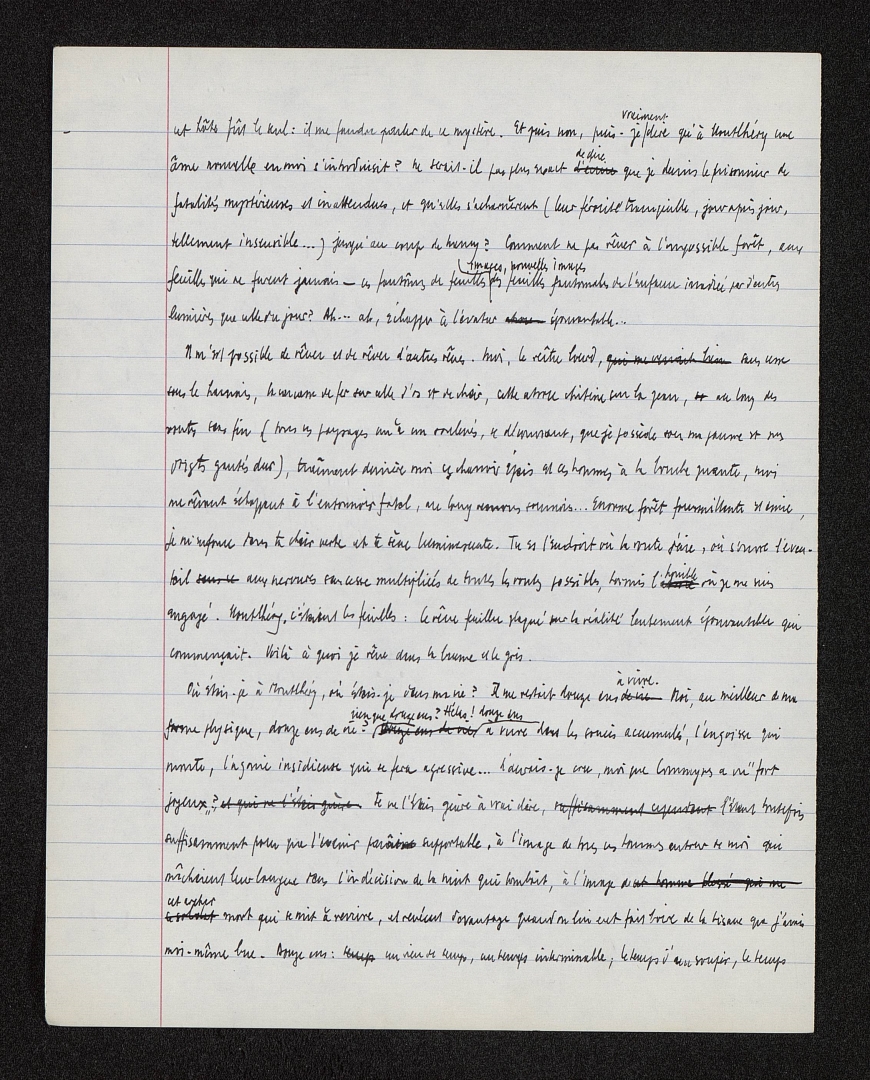 vraiment
cet hôte fût le seul : il me faudra parler de ce mystère. Et puis non, puis-je dire qu'à Montlhéry une
de dire
âme nouvelle en moi s'introduisit ? Ne serait-il pas plus exact d'écrire que je devins le prisonnier de
fatalités mystérieuses et inattendues, et qu'elles s'acharnèrent (leur férocité tranquille, jour après jour,
tellement insensible...) jusqu'au coup de Nancy ? Comment ne pas rêver à l'impossible forêt, aux
images, nouvelles images
feuilles qui ne furent jamais — ces fantômes de feuilles, des feuilles fantomales de l'enfance irradiée par d'autres
lumières que celle du jour ? Ah... ah, échapper à l'avatar épouvantable...
Il m'est possible de rêver et de rêver d'autres rêves. Moi, le reître lourd, qui me revient bien sans cesse
sous le harnois, la carcasse de fer sur celle d'os et de chair, cette atroce chitine sur la peau, au long des
routes sans fin (tous ces paysages un à un enlevés, se découvrant, que je possède avec ma paume et mes
doigts gantés dur), traînant derrière moi ce charroi épais et ces hommes à la bouche puante, moi
me rêvant échappant à l'entonnoir fatal, au long sournois... Énorme forêt fourmillante et amie,
je m'enfonce dans ta chair verte et ta sève luminescente. Tu es l'endroit où la route s'aère, où s'ouvre l'éven-
horrible
tail aux parcours sans cesse multipliés de toutes les routes possibles, hormis l' où je me suis
engagé. Montlhéry, c'étaient les feuilles : le rêve feuillu plaqué sur la réalité lentement épouvantable qui
commençait. Voilà à quoi je rêve dans la brume et le gris.
à vivre.
Où étais-je à Montlhéry, où étais-je dans ma vie ? Il me restait douze ans de vie. Moi, au meilleur de ma
rien que douze ans ? Hélas ! douze ans
forme physique, douze ans de vie ? Douze ans de vie, à vivre dans les soucis accumulés, l'angoisse qui
monte, l'agonie insidieuse qui se fera agressive... L'aurais-je cru, moi que Commynes a vu "fort
joyeux" ? et qui ne l'étais guère. Je ne l'étais guère à vrai dire, suffisamment cependant l'étant toutefois
suffisamment pour que l'avenir parût supportable, à l'image de tous ces hommes autour de moi qui
mâchaient leur langue dans l'indécision de la nuit qui tombait, à l'image de cet homme blessé qui me
cet archer
le soldat mort qui se mit à revivre, et revécut davantage quand on lui eut fait boire de la tisane que j'avais
moi-même bue. Douze ans : temps un rien de temps, un temps interminable ; le temps d'un soupir, le temps